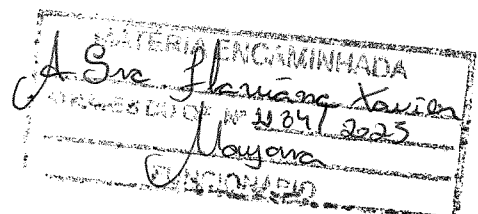 MATÉRIA ENCAMINHADA
A Sra Flaviana Xavier
Nº 1134/2023
Mayara
FUNCIONÁRIO